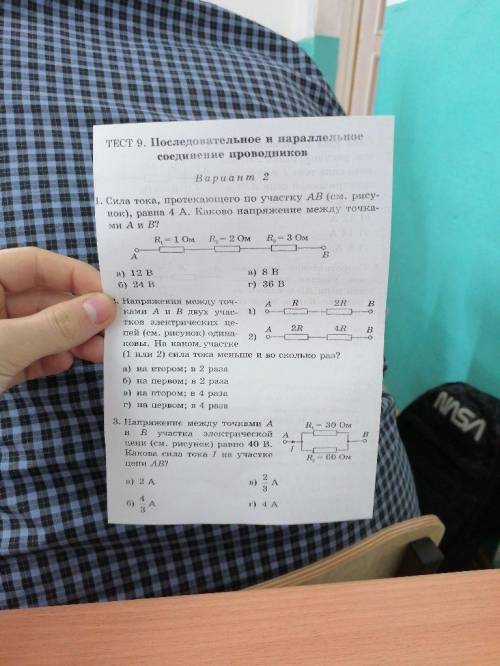 ТЕСТ 9. Последовательное и параллельное
соединение проводников
Вариант 2
1. Сила тока, протекающего по участку AB (см. рису-
нок), равна 4 А. Каково напряжение между точка-
ми A и B?
R₁ = 1 Ом R₂ = 2 Ом R₃ = 3 Ом
A B
а) 12 В в) 8 В
б) 24 В г) 36 В
2. Напряжения между точ-
ками A и B двух учас-
тков электрических це-
пей (см. рисунок) одина-
ковы. На каком участке
(1 или 2) сила тока меньше и во сколько раз?
1) A R 2R B
2) A 2R 4R B
а) на втором; в 2 раза
б) на первом; в 2 раза
в) на втором; в 4 раза
г) на первом; в 4 раза
3. Напряжение между точками A
и B участка электрической
цепи (см. рисунок) равно 40 В.
Какова сила тока I на участке
цепи AB?
R₁ = 30 Ом
A B
I
R₂ = 60 Ом
а) 2 А в) 2/3 А
б) 4/3 А г) 4 А
NASA